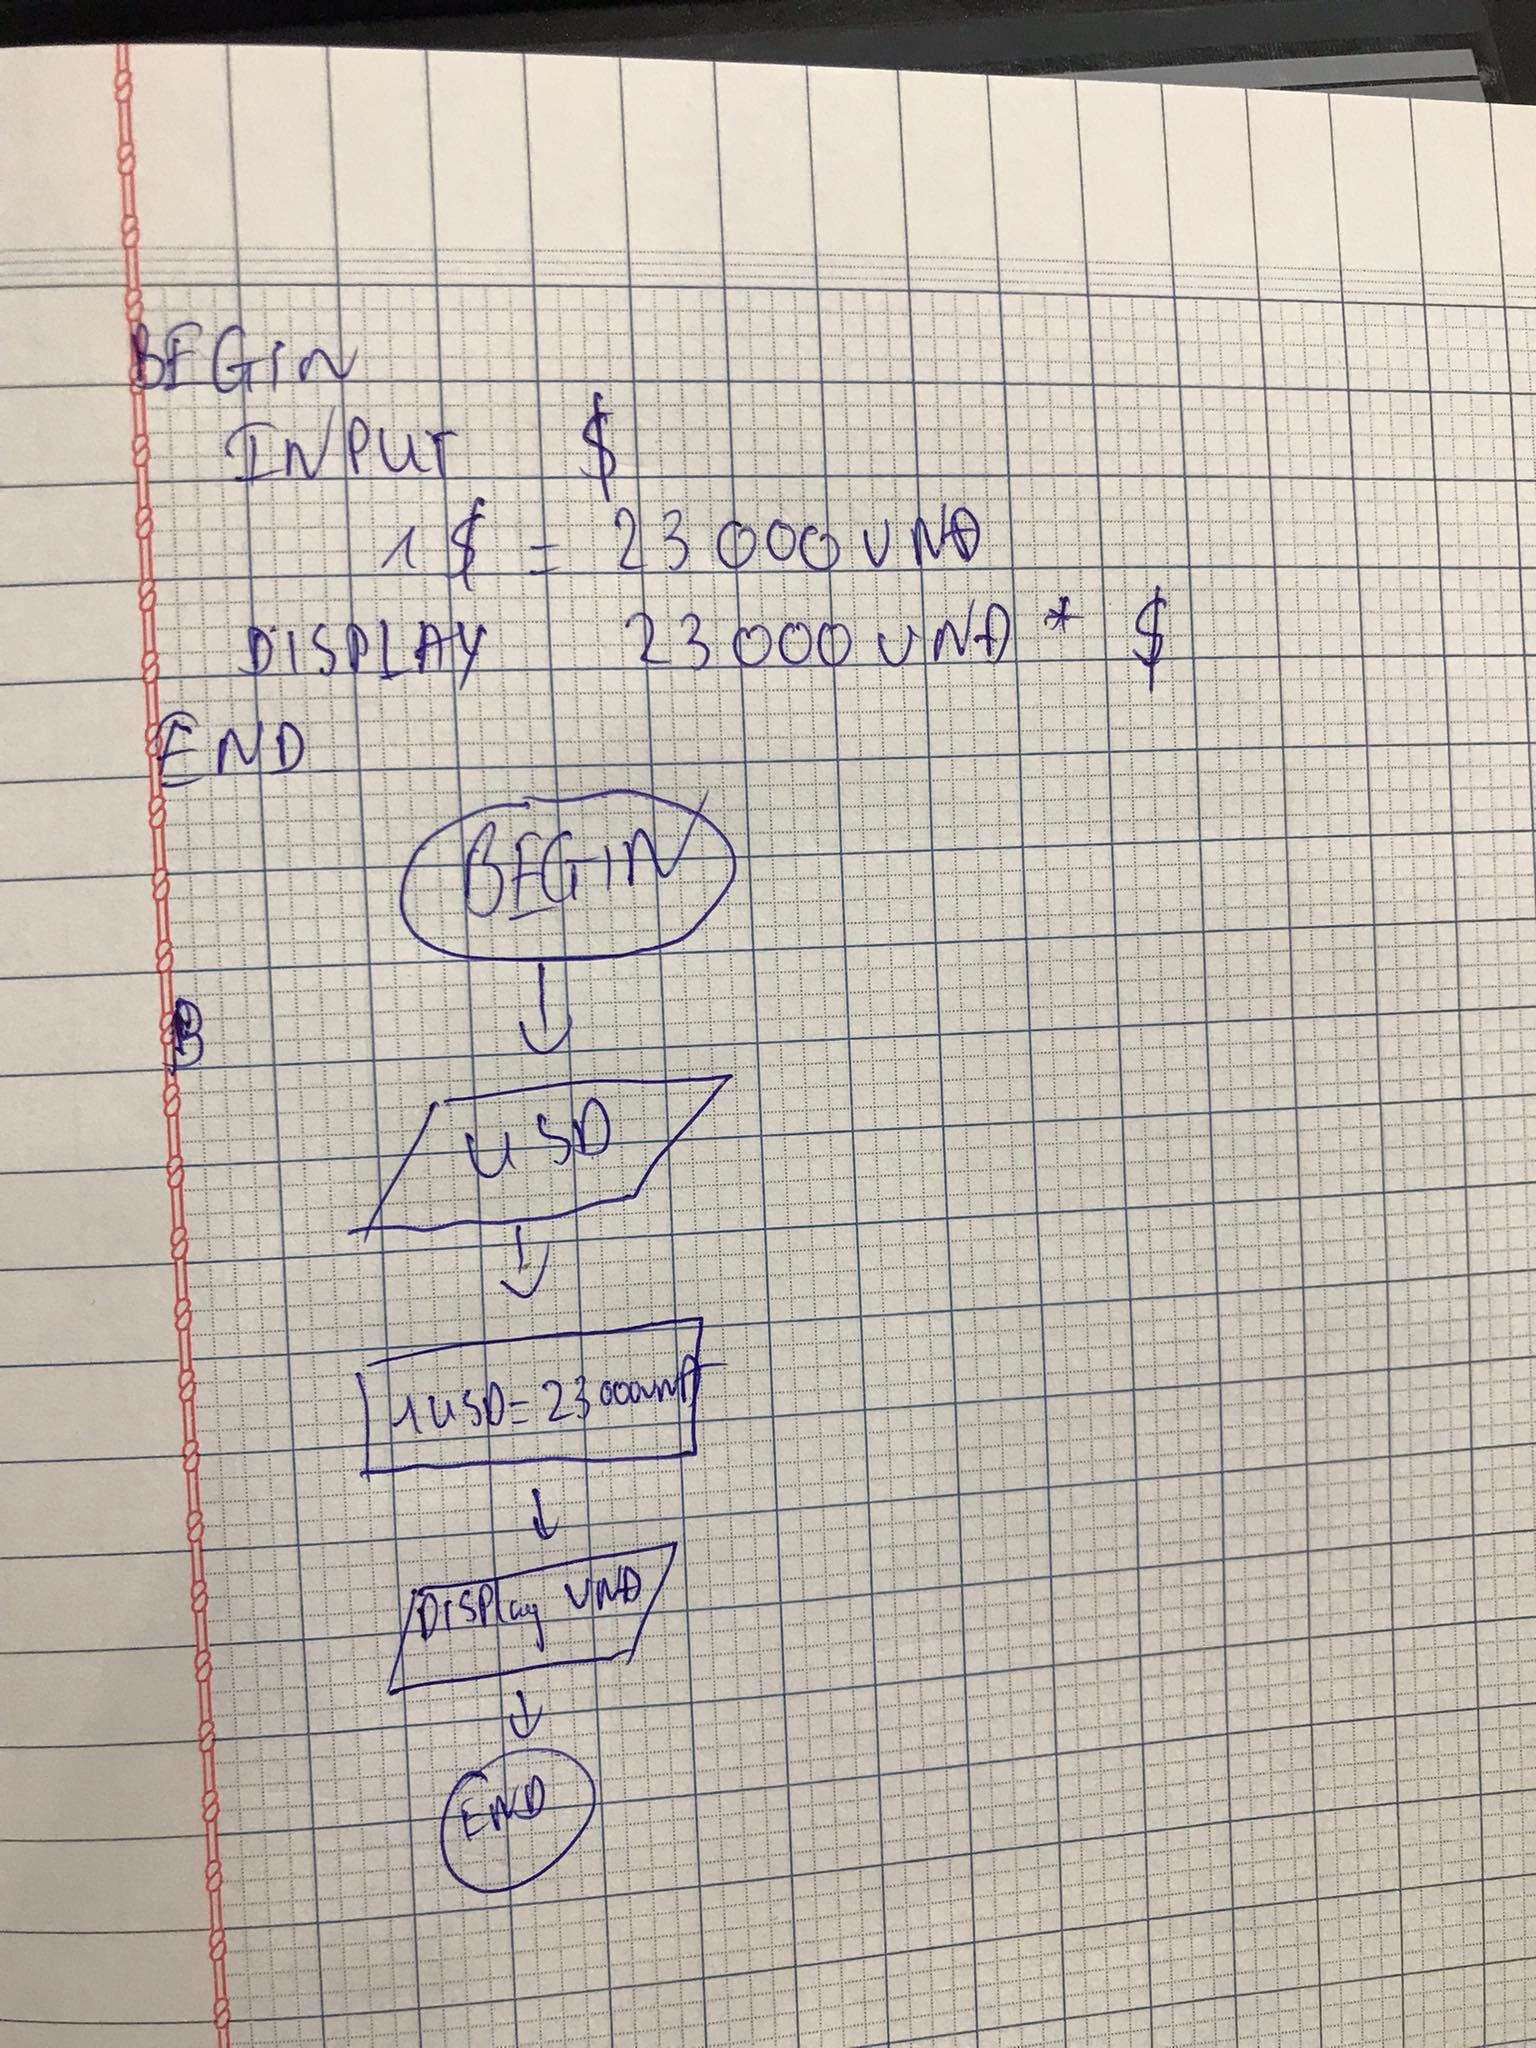 BEGIN
INPUT $
1$ = 23000VNĐ
DISPLAY 23000VNĐ * $
END
BEGIN
B
USD
1USD = 23000VNĐ
Display VNĐ
END